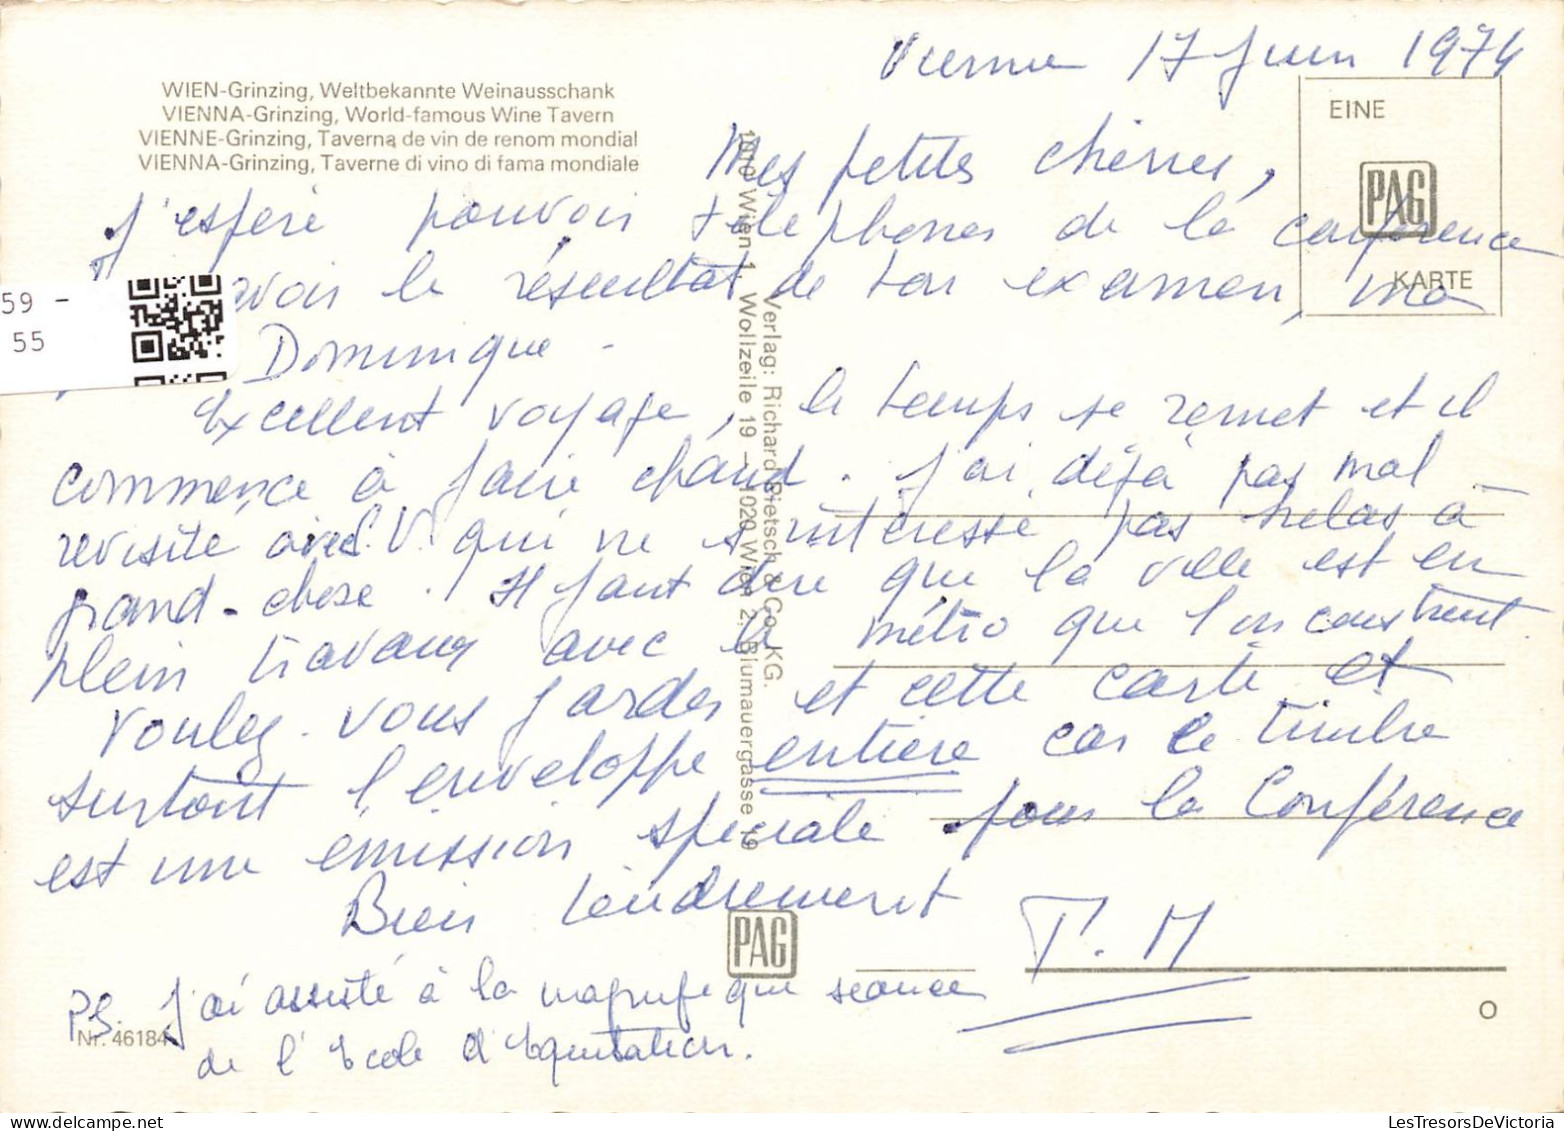 Vienne 17 Juin 1974
WIEN-Grinzing, Weltbekannte Weinausschank
VIENNA-Grinzing, World-famous Wine Tavern
VIENNE-Grinzing, Taverna de vin de renom mondial
VIENNA-Grinzing, Taverne di vino di fama mondiale
EINE
PAG
KARTE
Mes petites chéries,
J'espère pouvoir téléphoner de la conférence
avoir le résultat de ton examen, ma
59 -
55
Dominique -
Excellent voyage, le temps se remet et il
commence à faire chaud. J'ai déjà pas mal
revisité avec S.V. qui ne s'intéresse pas hélas à
grand-chose. Il faut dire que la ville est en
plein travaux avec le métro que l'on construit.
Voulez-vous garder et cette carte et
surtout l'enveloppe entière car le timbre
est une émission spéciale pour la Conférence
Bien tendrement
T. M
PS. J'ai assisté à la magnifique séance
de l'Ecole d'Equitation.
Nr. 46184
PAG
O
Verlag: Richard Pietsch & Co. KG.
1010 Wien 1, Wollzeile 19 – 1020 Wien 2, Blumauergasse 19
LesTresorsDeVictoria